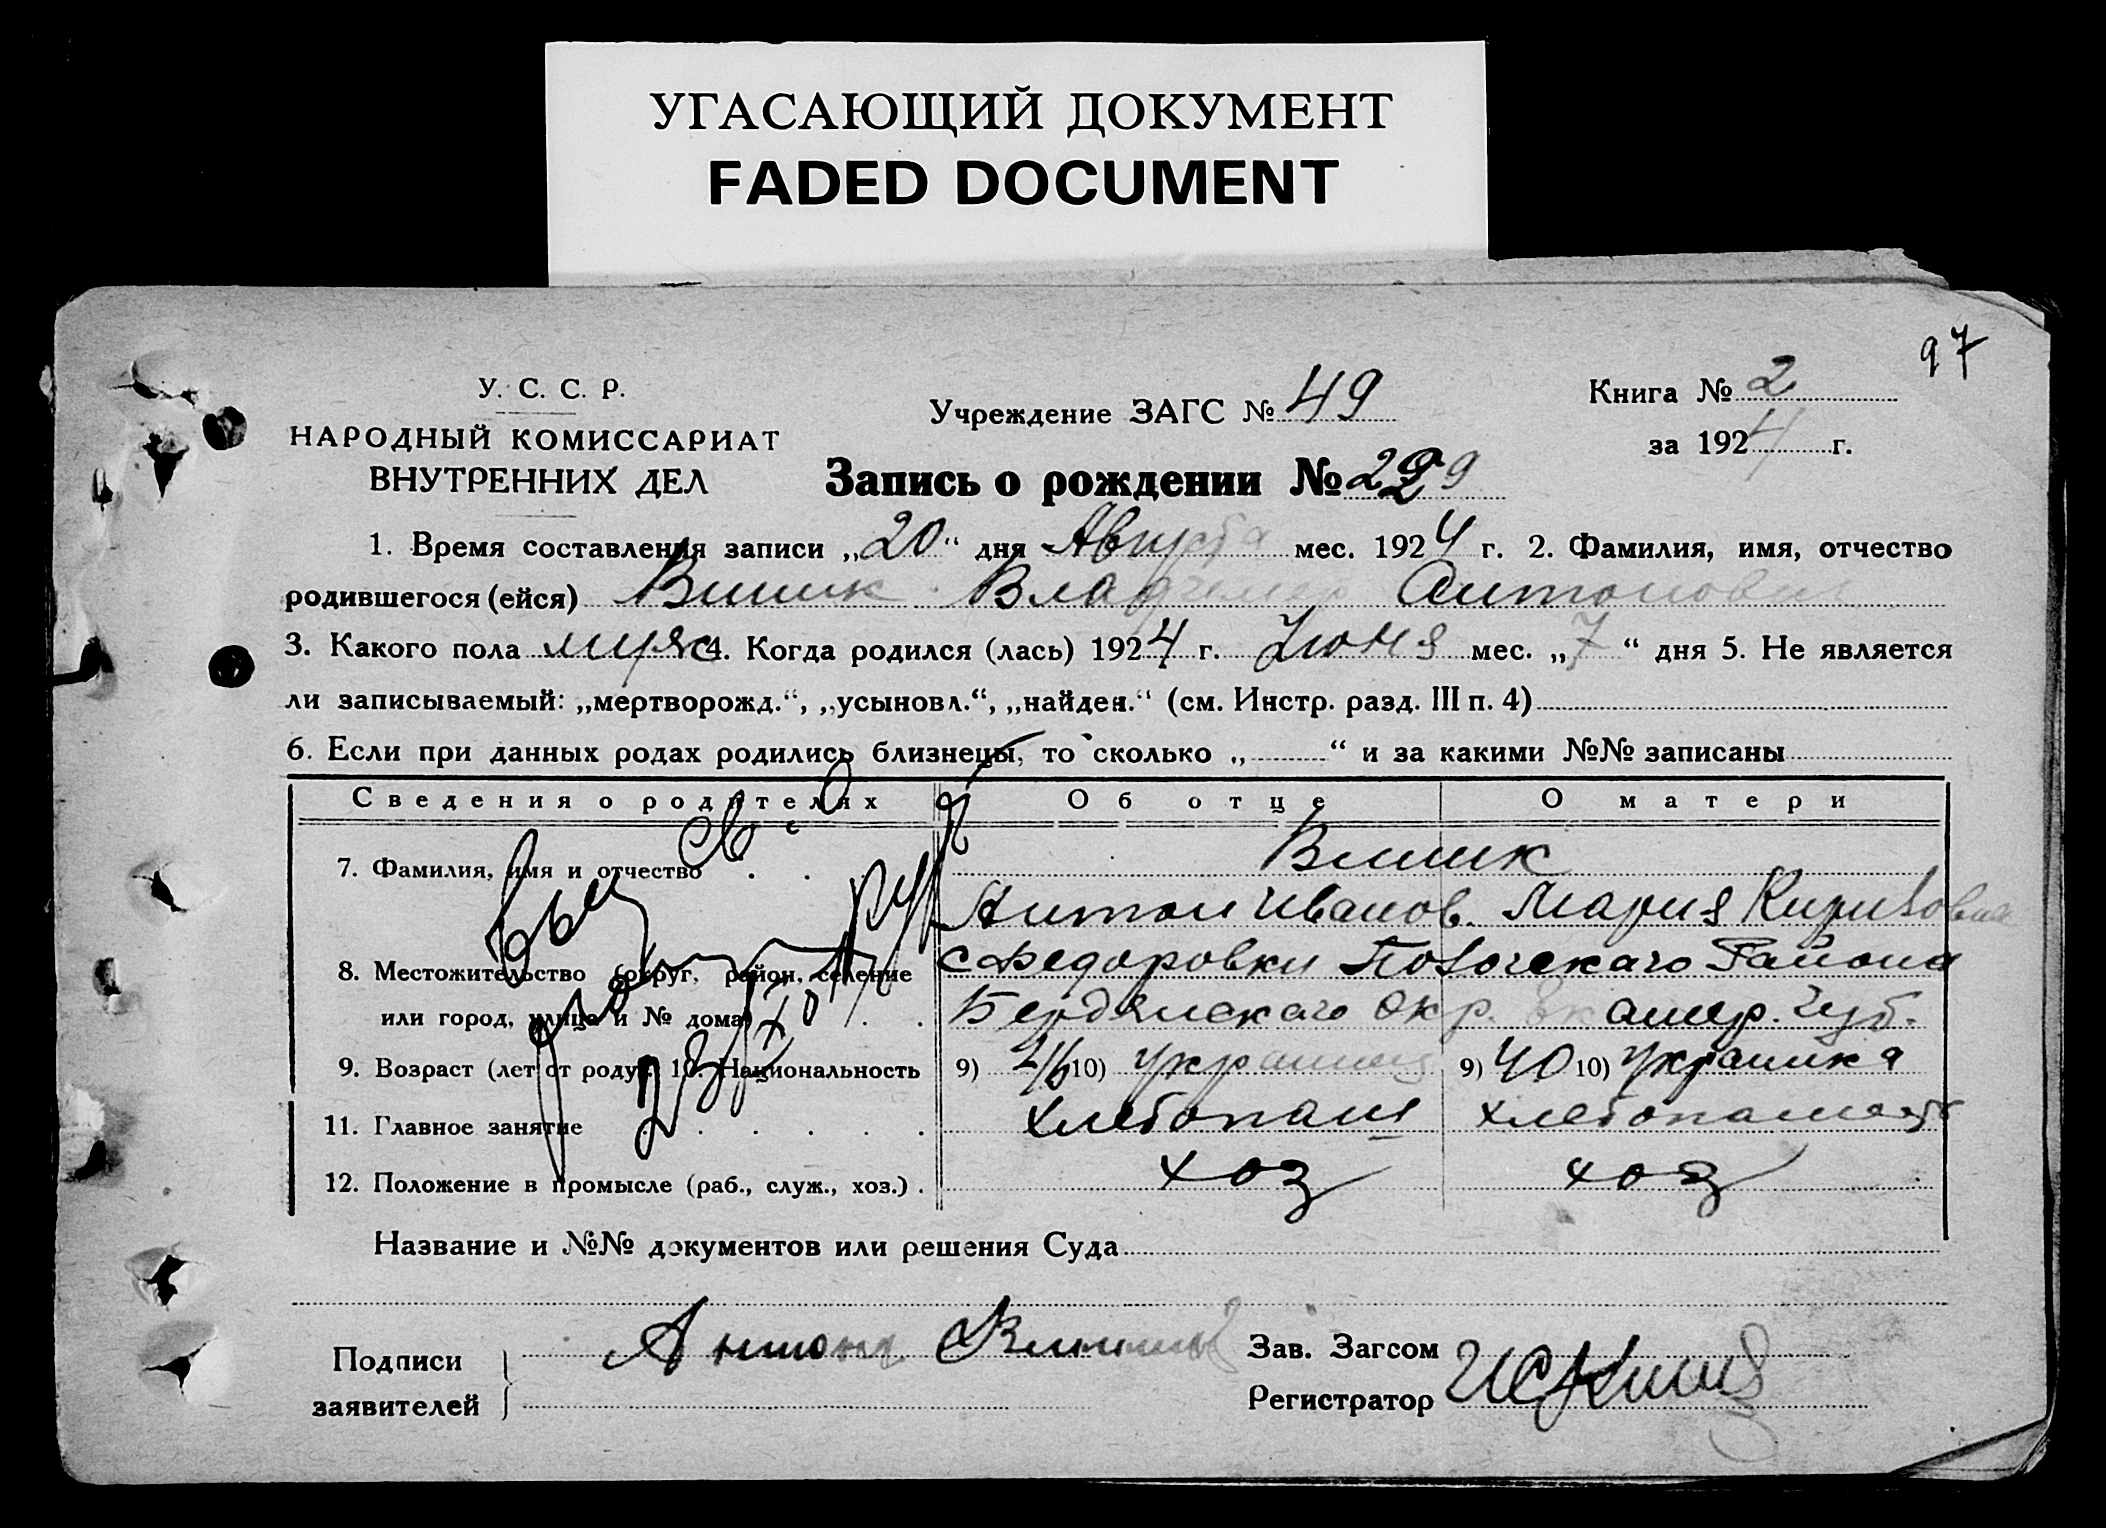 УГАСАЮЩИЙ ДОКУМЕНТ
FADED DOCUMENT
97
У. С. С. Р.
НАРОДНЫЙ КОМИССАРИАТ
ВНУТРЕННИХ ДЕЛ
Учреждение ЗАГС № 49
Книга № 2
за 1924 г.
Запись о рождении № 229
1. Время составления записи „20“ дня Августа мес. 1924 г. 2. Фамилия, имя, отчество
родившегося (ейся) Владимир Антонович
3. Какого пола муж 4. Когда родился (лась) 1924 г. Июня мес. „7“ дня 5. Не является
ли записываемый: „мертворожд.“, „усыновл.“, „найден.“ (см. Инстр. разд. III п. 4)
6. Если при данных родах родились близнецы, то сколько „ “ и за какими №№ записаны
Сведения о родителях Об отце О матери
7. Фамилия, имя и отчество
Антон Иванов. Мария
8. Местожительство (округ, район, селение с Федоровки Района
или город, улица и № дома) Бердянскаго Окр. Губ.
9. Возраст (лет от роду) 10. Национальность 9) 46 10) Украинец 9) 40 10) Украинка
11. Главное занятие Хлебопаш
12. Положение в промысле (раб., служ., хоз.) хоз хоз
Название и №№ документов или решения Суда
Подписи
заявителей
Антон
Зав. Загсом
Регистратор